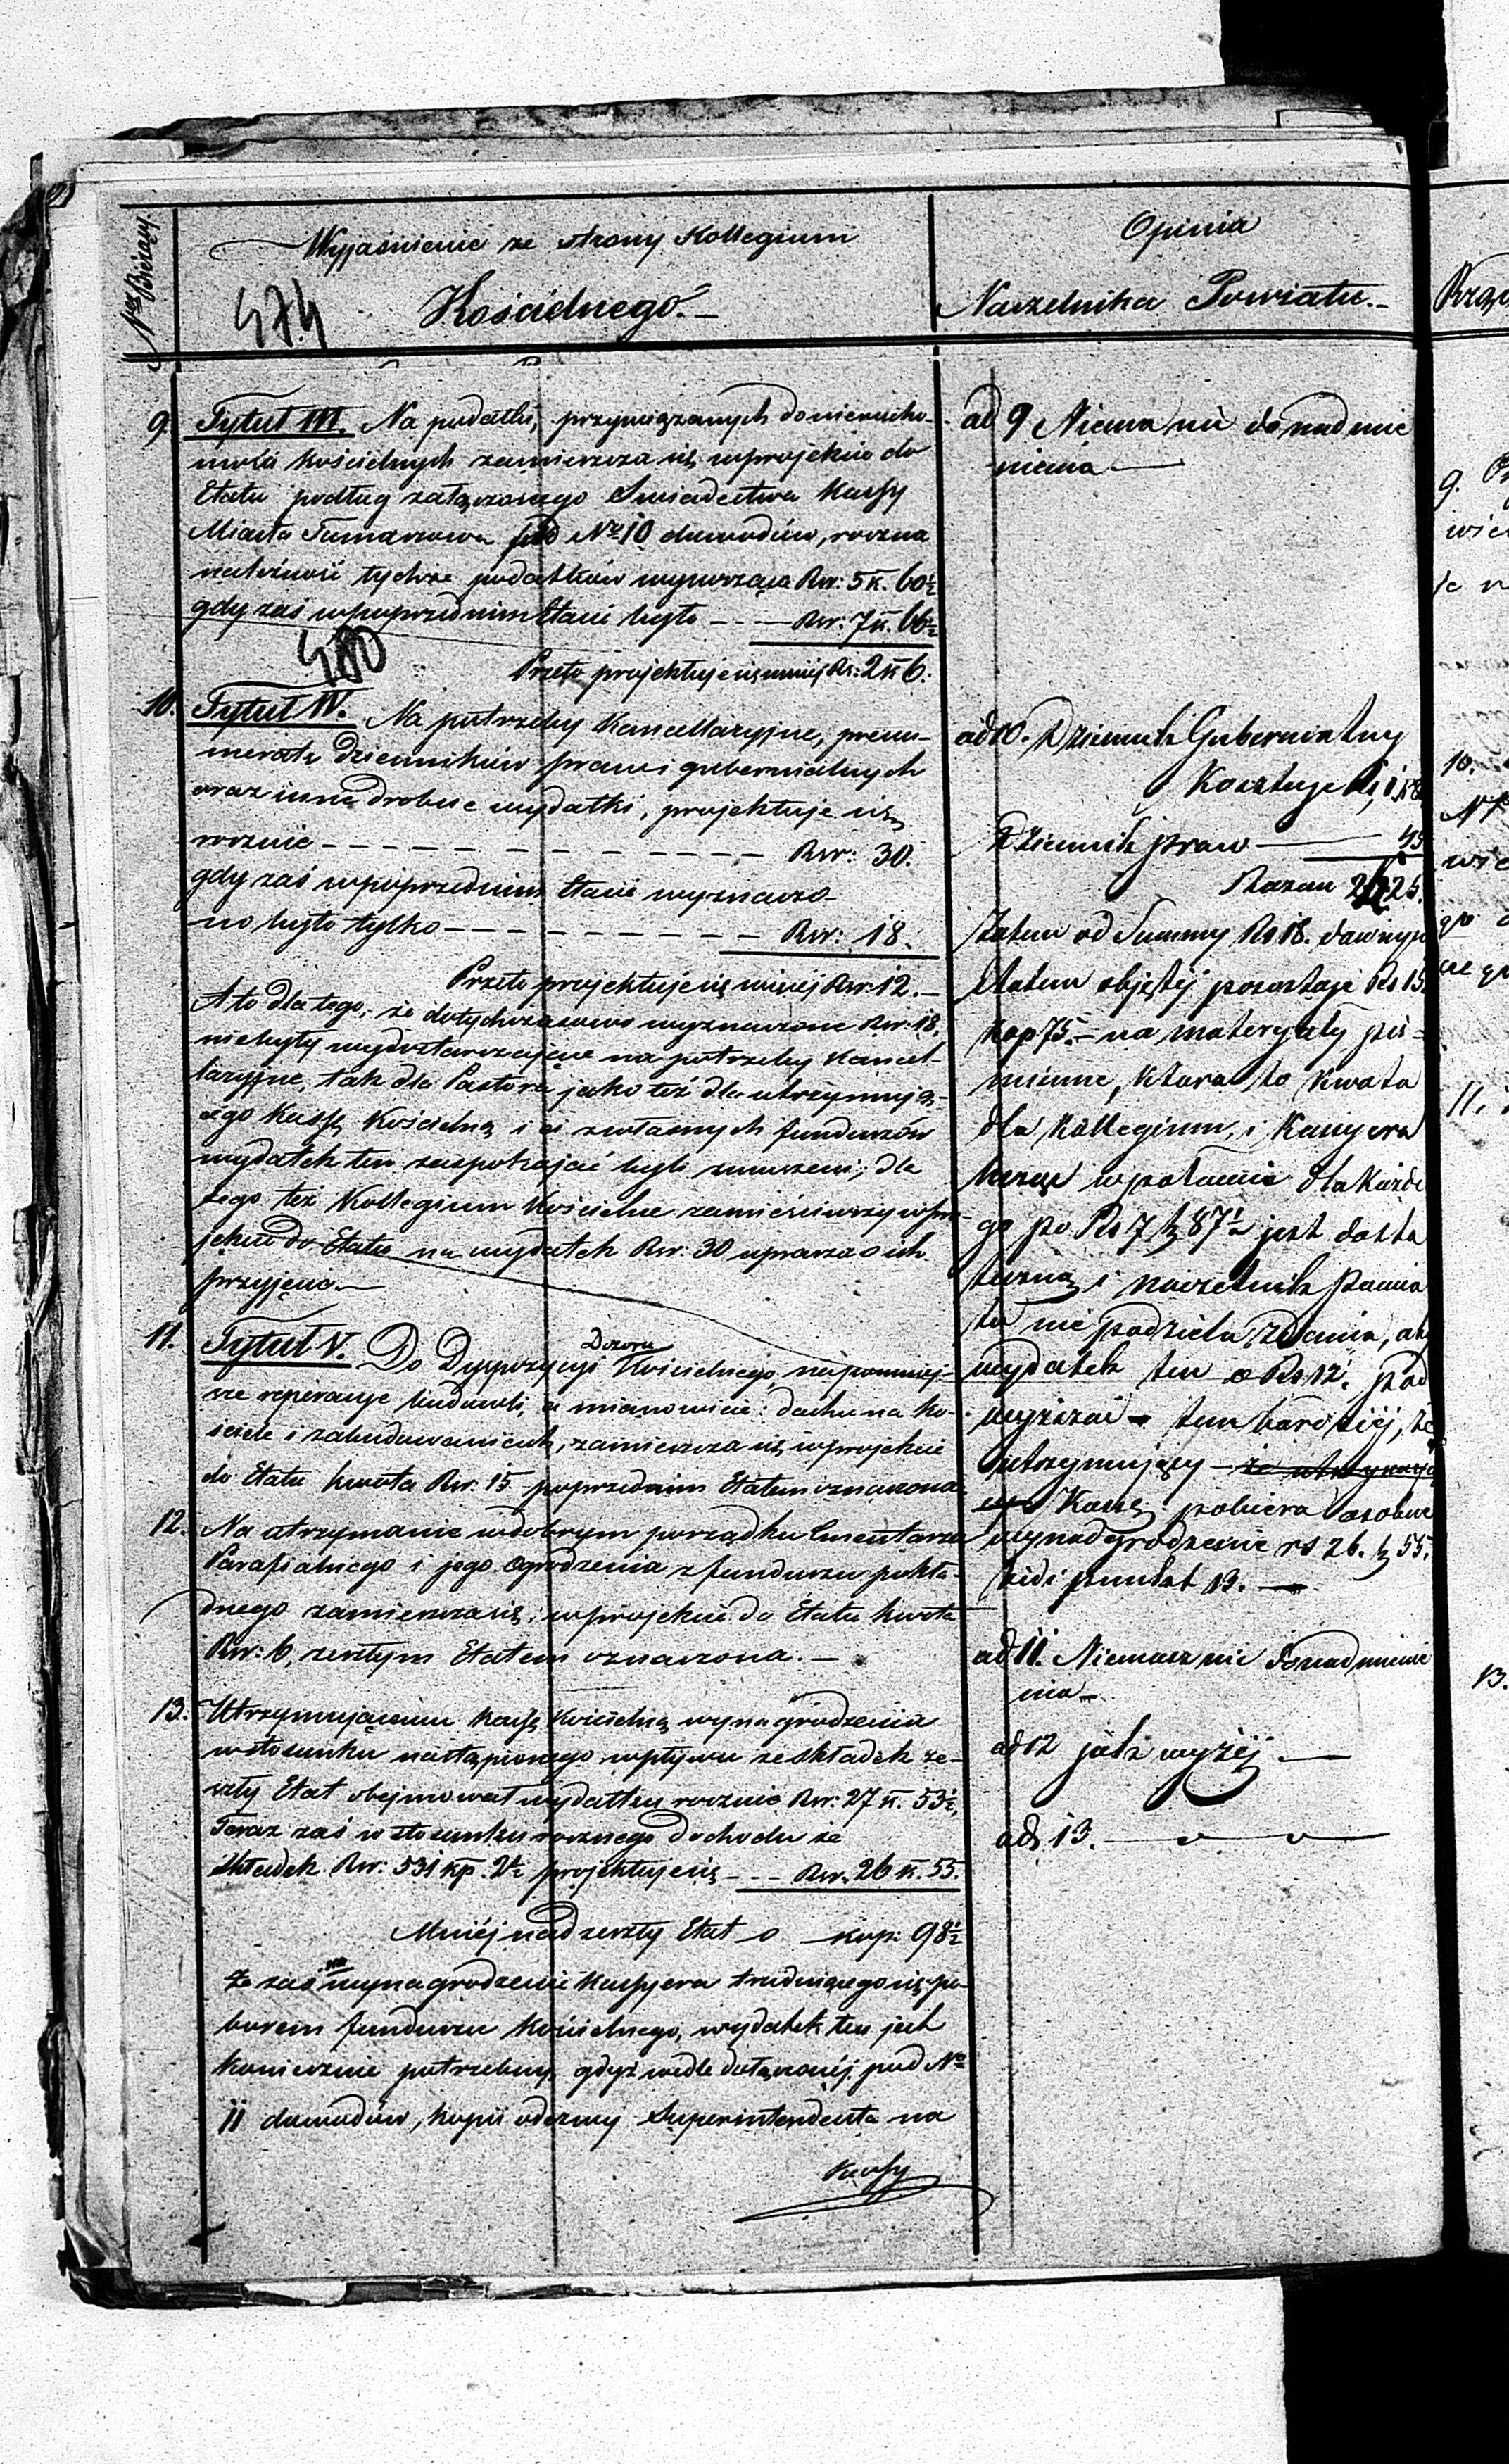 Nr Bieżący.
Wyjaśnienie ze strony Kollegium
Kościelnego.—
474
Opinia
Naczelnika Powiatu.—
9. Tytuł III. Na podatki, przywiązanych do nierucho-
mości kościelnych zamieszcza się w projekcie do
Etatu podług załączonego Swiadectwa Kassy
Miasta Tomaszowa pod Nro 10 dowodów, roczna
należność tychże podatków wynosząca Rsr: 5 k. 60½
gdy zaś w poprzednim Etacie było — — Rsr: 7 k. 66½
480
Przeto projektuje się mniej Rs: 2 k 6.
10. Tytuł IV. Na potrzeby Kancellaryjne, prenu-
meratę dzienników praw i gubernialnych
oraz inne drobne wydatki, projektuje się
rocznie — — — — — — — — Rsr: 30.
gdy zaś w poprzednim Etacie wyznaczo-
no było tylko — — — — — — — — Rsr: 18.
Przeto projektuje się więcej Rsr. 12.—
A to dla tego, że dotychczasowo wyznaczone Rsr: 18,
niebyły wydostarczające na potrzeby Kancel-
laryjne, tak dla Pastora jako też dla utrzymują-
cego Kassę Kościelną i ci z własnych funduszów
wydatek ten zaspokajać byli zmuszeni; dla
tego też Kollegium Kościelne zamieściwszy w pro-
jekcie do Etatu na wydatek Rsr: 30 uprasza o ich
przyjęcie.—
11. Tytuł V. Do Dyspozycyi Dozoru Kościelnego, na pomniej-
sze reperacye budowli, a mianowicie: dachu na Ko-
ściele i zabudowaniach, zamieszcza się w projekcie
do Etatu kwota Rsr: 15 poprzednim Etatem oznaczona.
12. Na utrzymanie w dobrym porządku Cmentarza
Parafialnego i jego ogrodzenia z funduszu pokła-
dnego zamieszcza się w projekcie do Etatu kwota
Rsr: 6, zeszłym Etatem oznaczona.—
13. Utrzymującemu Kassę Kościelną wynagrodzenia
w stosunku nastąpionego wpływu ze składek ze-
szły Etat obejmował wydatku rocznie Rsr: 27 k. 53½,
Teraz zaś w stosunku rocznego dochodu ze
składek Rsr: 531 kp. 2½ projektuje się — — Rsr. 26 k. 55.
Mniéj nad zeszły Etat o — kop: 98½
Że zaś na wynagrodzenie Kassyera trudniącego się po-
borem funduszu Kościelnego, wydatek ten jest
koniecznie potrzebny, gdyż wedle dołączonéj pod Nro
11 dowodów, kopii odezwy Superintendenta na
Kassy
ad 9 Niema nic do nadmie
nienia —
ad 10. Dziennik Gubernialny
Kosztuje Rs 1.
Dziennik praw — 45
Razem 2 25.
Zatem od Summy Rs 18. dawnym
Etatem objętéj pozostaje Rs 15
kop 75.— na materyały piś-
mienne, która to kwota
dla Kollegium, i Kassyera
licząc w połowie dla każde
go po Rs 7 k 87½ jest dosta
teczną i Naczelnik Powia
tu nie podziela zdania, aby
wydatek ten o Rs 12. pod
wyższać — tem bardziéj, że
utrzymujący
Kassę pobiera osobne
wynagrodzenie rs 26. k 55.
vidi punkt 13. —
ad 11. Niemasz nic do nadmienie
nia—
ad 12 jak wyżéj —
ad 13. — „ — „ —
9.
10.
11.
13.